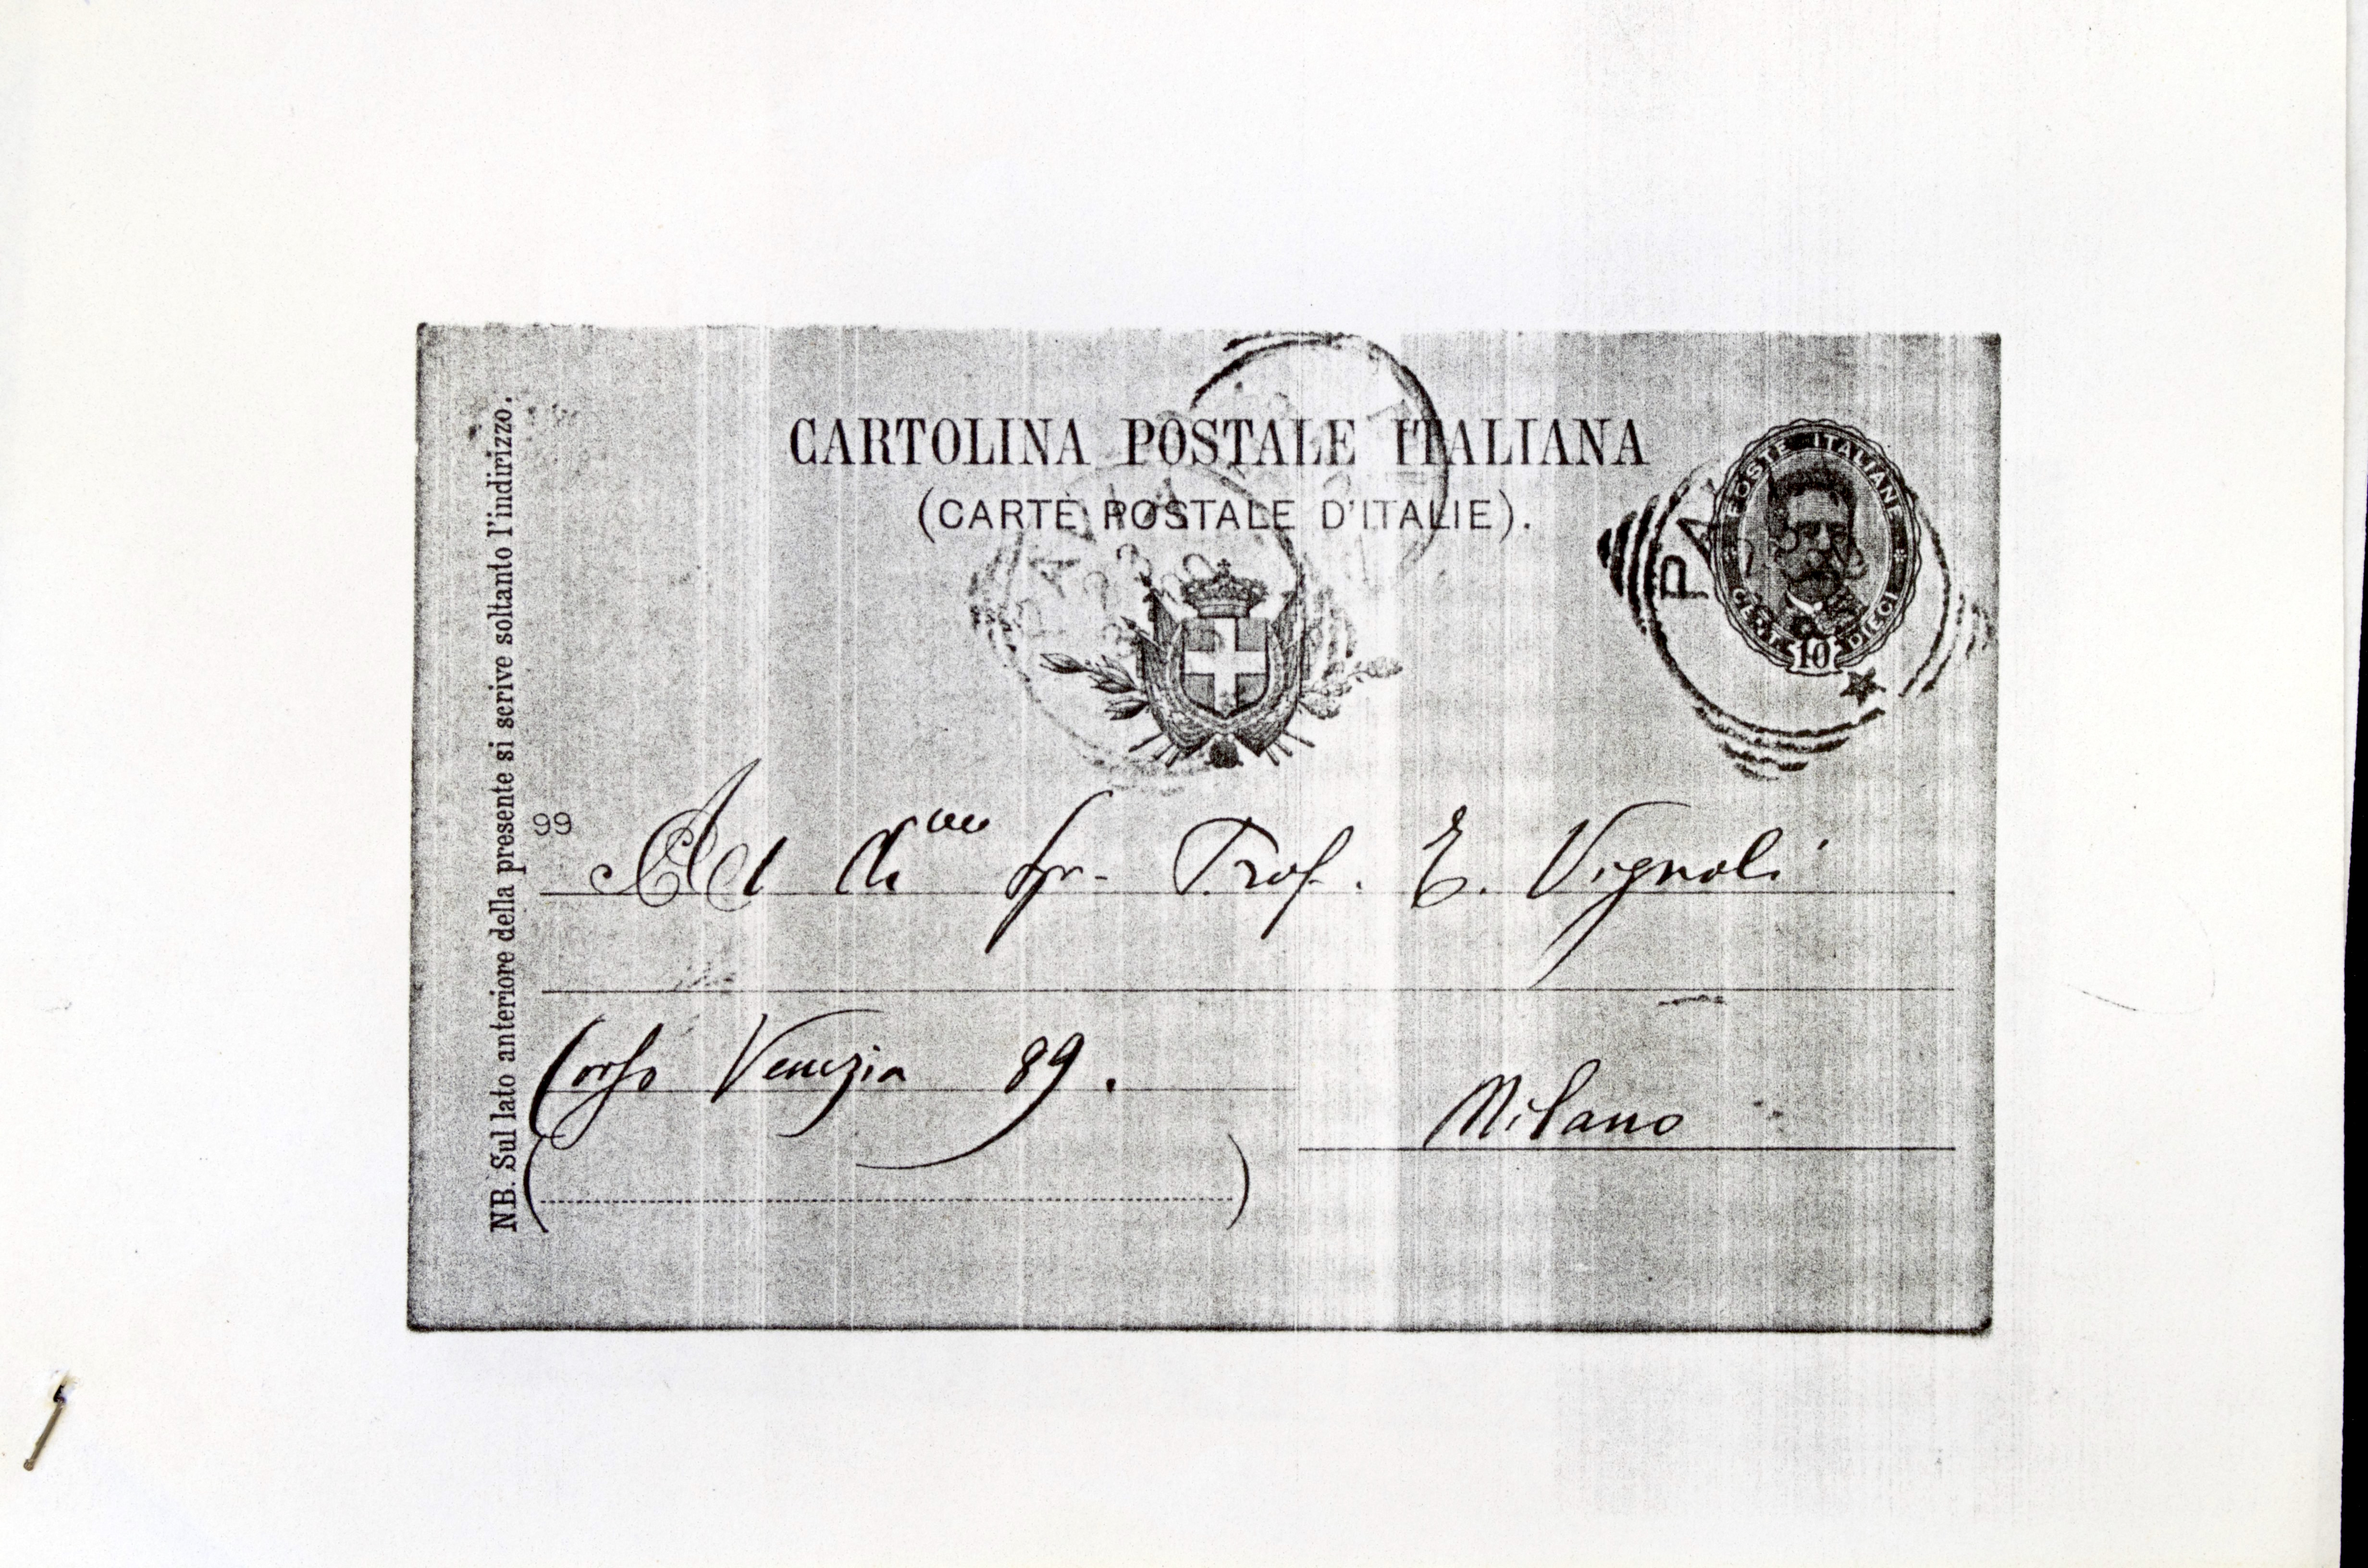 CARTOLINA POSTALE ITALIANA
(CARTE POSTALE D'ITALIE).
POSTE ITALIANE
CENT. DIECI
10
PA
NB. Sul lato anteriore della presente si scrive soltanto l'indirizzo.
99
Al Ch.mo Sgr. Prof. E. Vignoli
Corso Venezia 89.
Milano